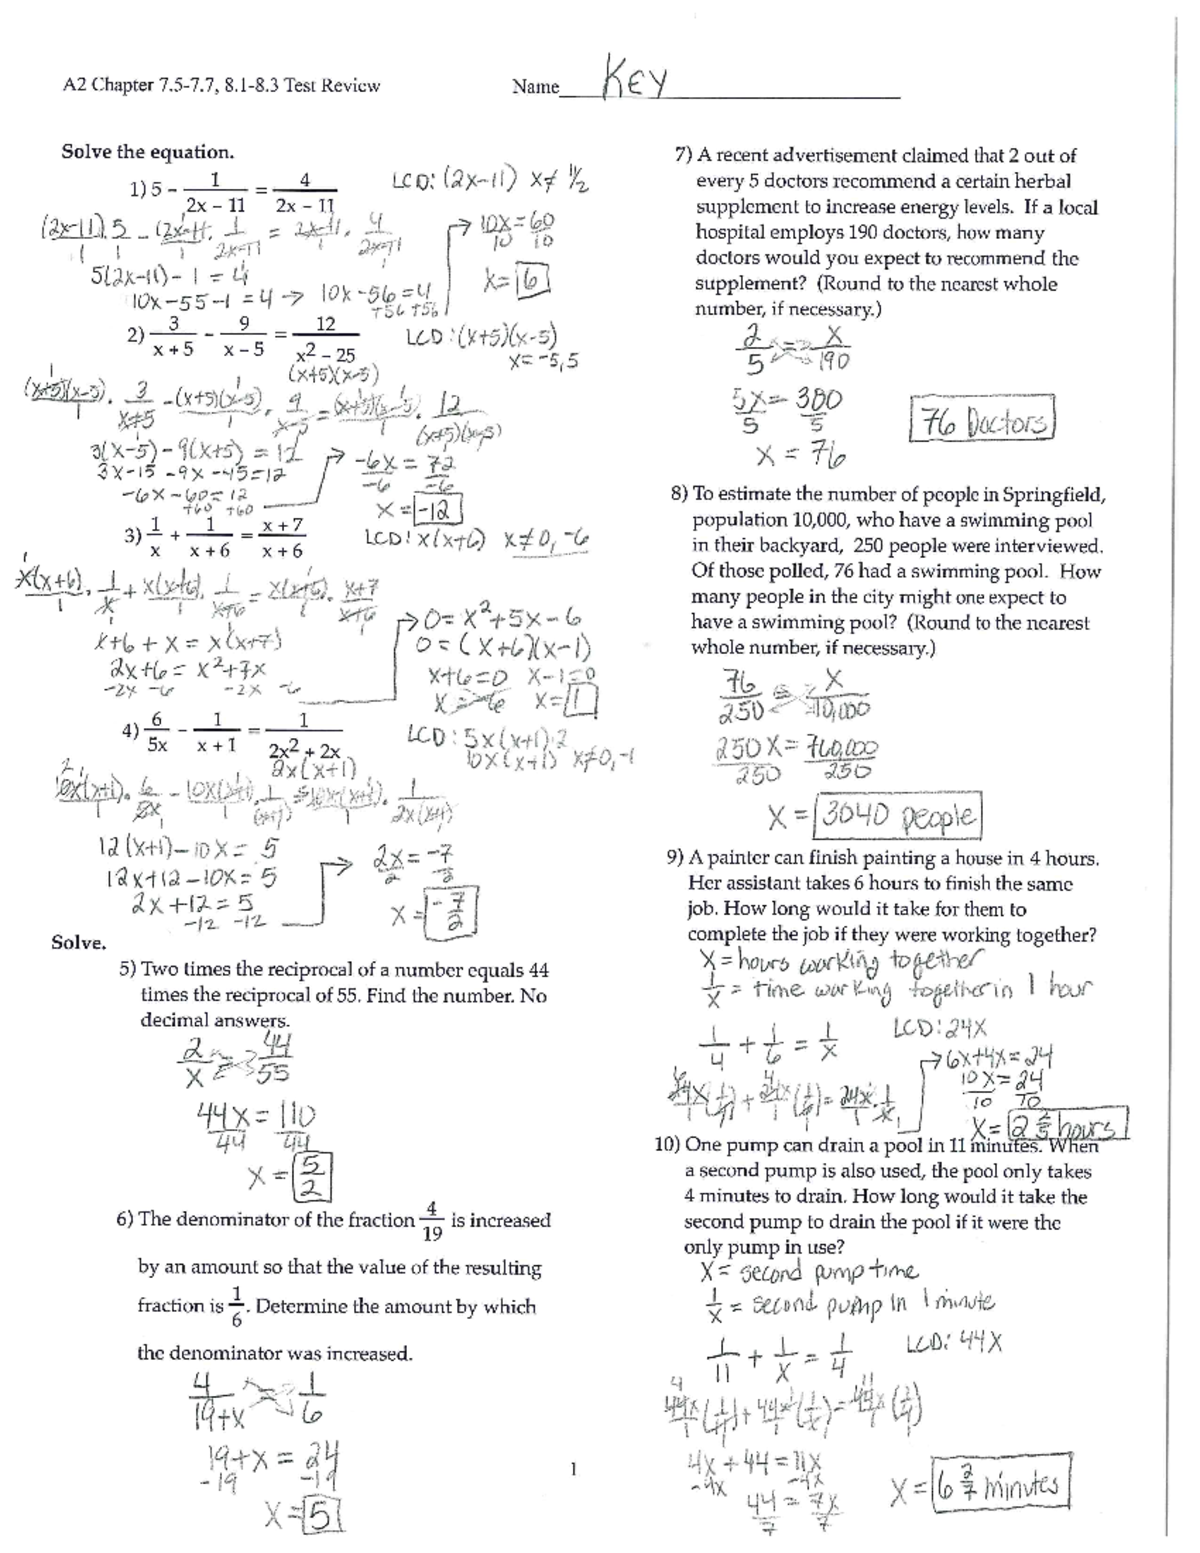 A2 Chapter 7.5-7.7, 8.1-8.3 Test Review
Name KEY
Solve the equation.
1) 5 - 1/(2x - 11) = 4/(2x - 11)
LCD: (2x-11) x≠ 11/2
(2x-11).5 - (2x-11). 1/(2x-11) = 2x-11 . 4/(2x-11)
5(2x-11) - 1 = 4
10x-55-1 = 4 → 10x-56=4
+56 +56
→ 10x = 60
10 10
x= 6
2) 3/(x + 5) - 9/(x - 5) = 12/(x2 - 25)
(x+5)(x-5)
LCD: (x+5)(x-5)
x= -5,5
(x+5)(x-5) . 3/(x+5) - (x+5)(x-5) . 9/(x-5) = (x+5)(x-5) . 12/(x+5)(x-5)
3(x-5) - 9(x+5) = 12
3x-15 -9x -45=12
-6x-60=12
+60 +60
→ -6x = 72
-6 -6
x = -12
3) 1/x + 1/(x + 6) = (x + 7)/(x + 6)
LCD: x(x+6) x≠0, -6
x(x+6) . 1/x + x(x+6) . 1/(x+6) = x(x+6) . (x+7)/(x+6)
x+6 + x = x(x+7)
2x+6 = x²+7x
-2x -6 -2x -6
→ 0= x²+5x-6
0=(x+6)(x-1)
x+6=0 x-1=0
x=-6 x=1
4) 6/5x - 1/(x + 1) = 1/(2x2 + 2x)
2x(x+1)
LCD: 5x(x+1)·2
10x(x+1) x≠0,-1
10x(x+1) . 6/5x - 10x(x+1) . 1/(x+1) = 10x(x+1) . 1/2x(x+1)
12(x+1)-10x= 5
12x+12-10x= 5
2x+12=5
-12 -12
→ 2x = -7
2 2
x = -7/2
Solve.
5) Two times the reciprocal of a number equals 44
times the reciprocal of 55. Find the number. No
decimal answers.
2/x = 44/55
44x = 110
44 44
x = 5/2
6) The denominator of the fraction 4/19 is increased
by an amount so that the value of the resulting
fraction is 1/6. Determine the amount by which
the denominator was increased.
4/(19+x) = 1/6
19+x = 24
-19 -19
x=5
7) A recent advertisement claimed that 2 out of
every 5 doctors recommend a certain herbal
supplement to increase energy levels. If a local
hospital employs 190 doctors, how many
doctors would you expect to recommend the
supplement? (Round to the nearest whole
number, if necessary.)
2/5 = x/190
5x = 380
5 5
x = 76
76 Doctors
8) To estimate the number of people in Springfield,
population 10,000, who have a swimming pool
in their backyard, 250 people were interviewed.
Of those polled, 76 had a swimming pool. How
many people in the city might one expect to
have a swimming pool? (Round to the nearest
whole number, if necessary.)
76/250 = x/10,000
250x = 760,000
250 250
x = 3040 people
9) A painter can finish painting a house in 4 hours.
Her assistant takes 6 hours to finish the same
job. How long would it take for them to
complete the job if they were working together?
x = hours working together
1/x = time working together in 1 hour
1/4 + 1/6 = 1/x
LCD: 24x
24x(1/4) + 24x(1/6) = 24x . 1/x
→ 6x+4x = 24
10x = 24
10 10
x= 2 2/5 hours
10) One pump can drain a pool in 11 minutes. When
a second pump is also used, the pool only takes
4 minutes to drain. How long would it take the
second pump to drain the pool if it were the
only pump in use?
x = second pump time
1/x = second pump in 1 minute
1/11 + 1/x = 1/4
LCD: 44x
44x(1/11) + 44x(1/x) = 44x(1/4)
4x + 44 = 11x
-4x -4x
44 = 7x
7 7
x = 6 2/7 minutes
1